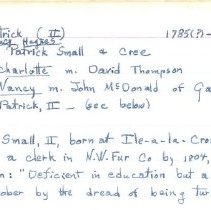 trick (II) 1785(?)-
Patrick Small & Cree
Charlotte m. David Thompson
Nancy m. John McDonald of Ga
Patrick, II – (see below)
Small, II, born at Ile-a-la-Cro
a clerk in N.W. Fur Co by 1804,
n: "Deficient in education but a
ober by the dread of being tur